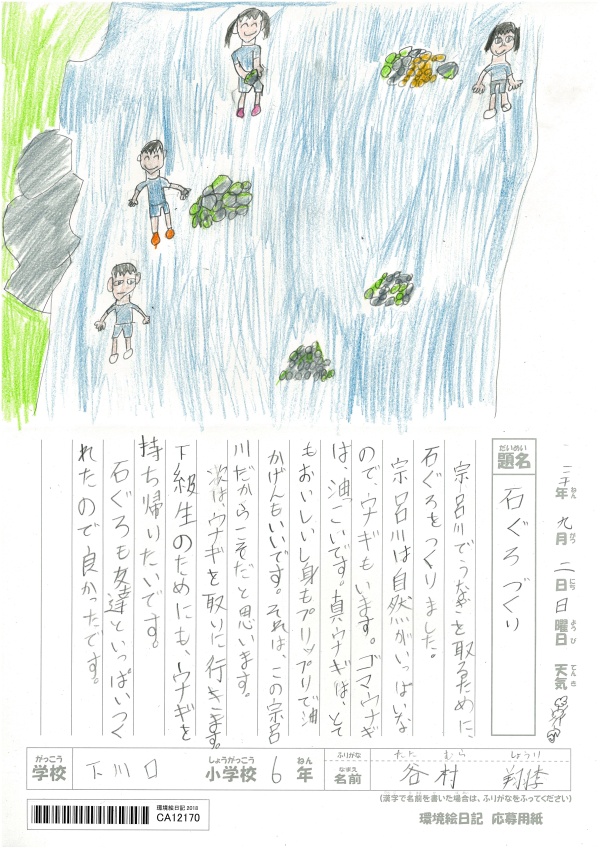 三十年 九月 二日 日曜日 天気
ねん がつ にち ようび てんき
だいめい
題名 石ぐろづくり
宗呂川でうなぎを取るために
石ぐろをつくりました。
宗呂川は自然がいっぱいな
ので、ウナギもいます。ゴマウナギ
は、油こいです。真ウナギは、とて
もおいしいし身もプリップリで油
かげんもいいです。それは、この宗呂
川だからこそだと思います。
次は、ウナギを取りに行きます。
下級生のためにも、ウナギを
持ち帰りたいです。
石ぐろも友達といっぱいつく
れたので良かったです。
がっこう しょうがっこう ねん ふりがな たに むら
学校 下川口 小学校 6年 なまえ 名前 谷村
(漢字で名前を書いた場合は、ふりがなをふってください)
環境絵日記 2018
CA12170
環境絵日記 応募用紙